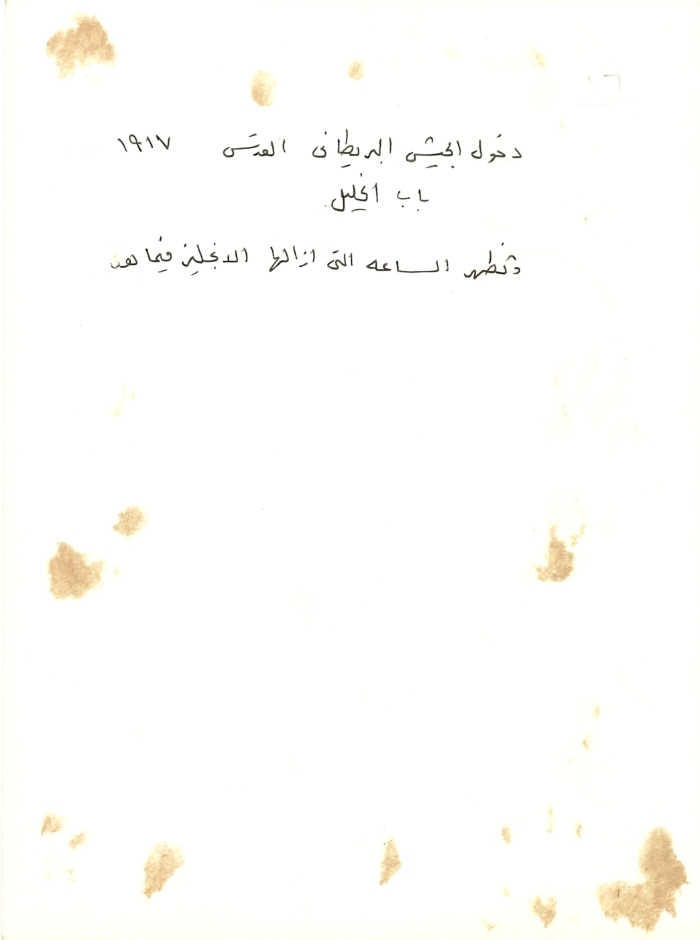 دخول الجيش البريطانى القدس ١٩١٧
باب الخليل.
وتظهر الساعه التى ازالها الانجليز فيما